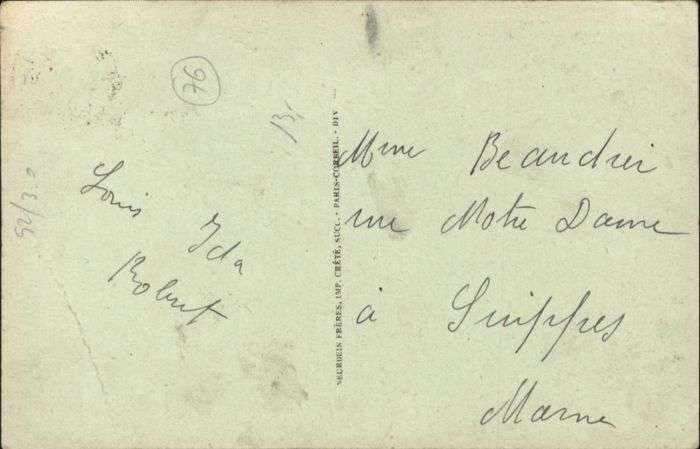 76
13,-
92/3.0
Louis
Ida
Robert
NEURDEIN FRÈRES, IMP. CRÉTÉ, SUCC. - PARIS-CORBEIL. - DIV
Mme Beaudier
rue Notre Dame
à Suippes
Marne